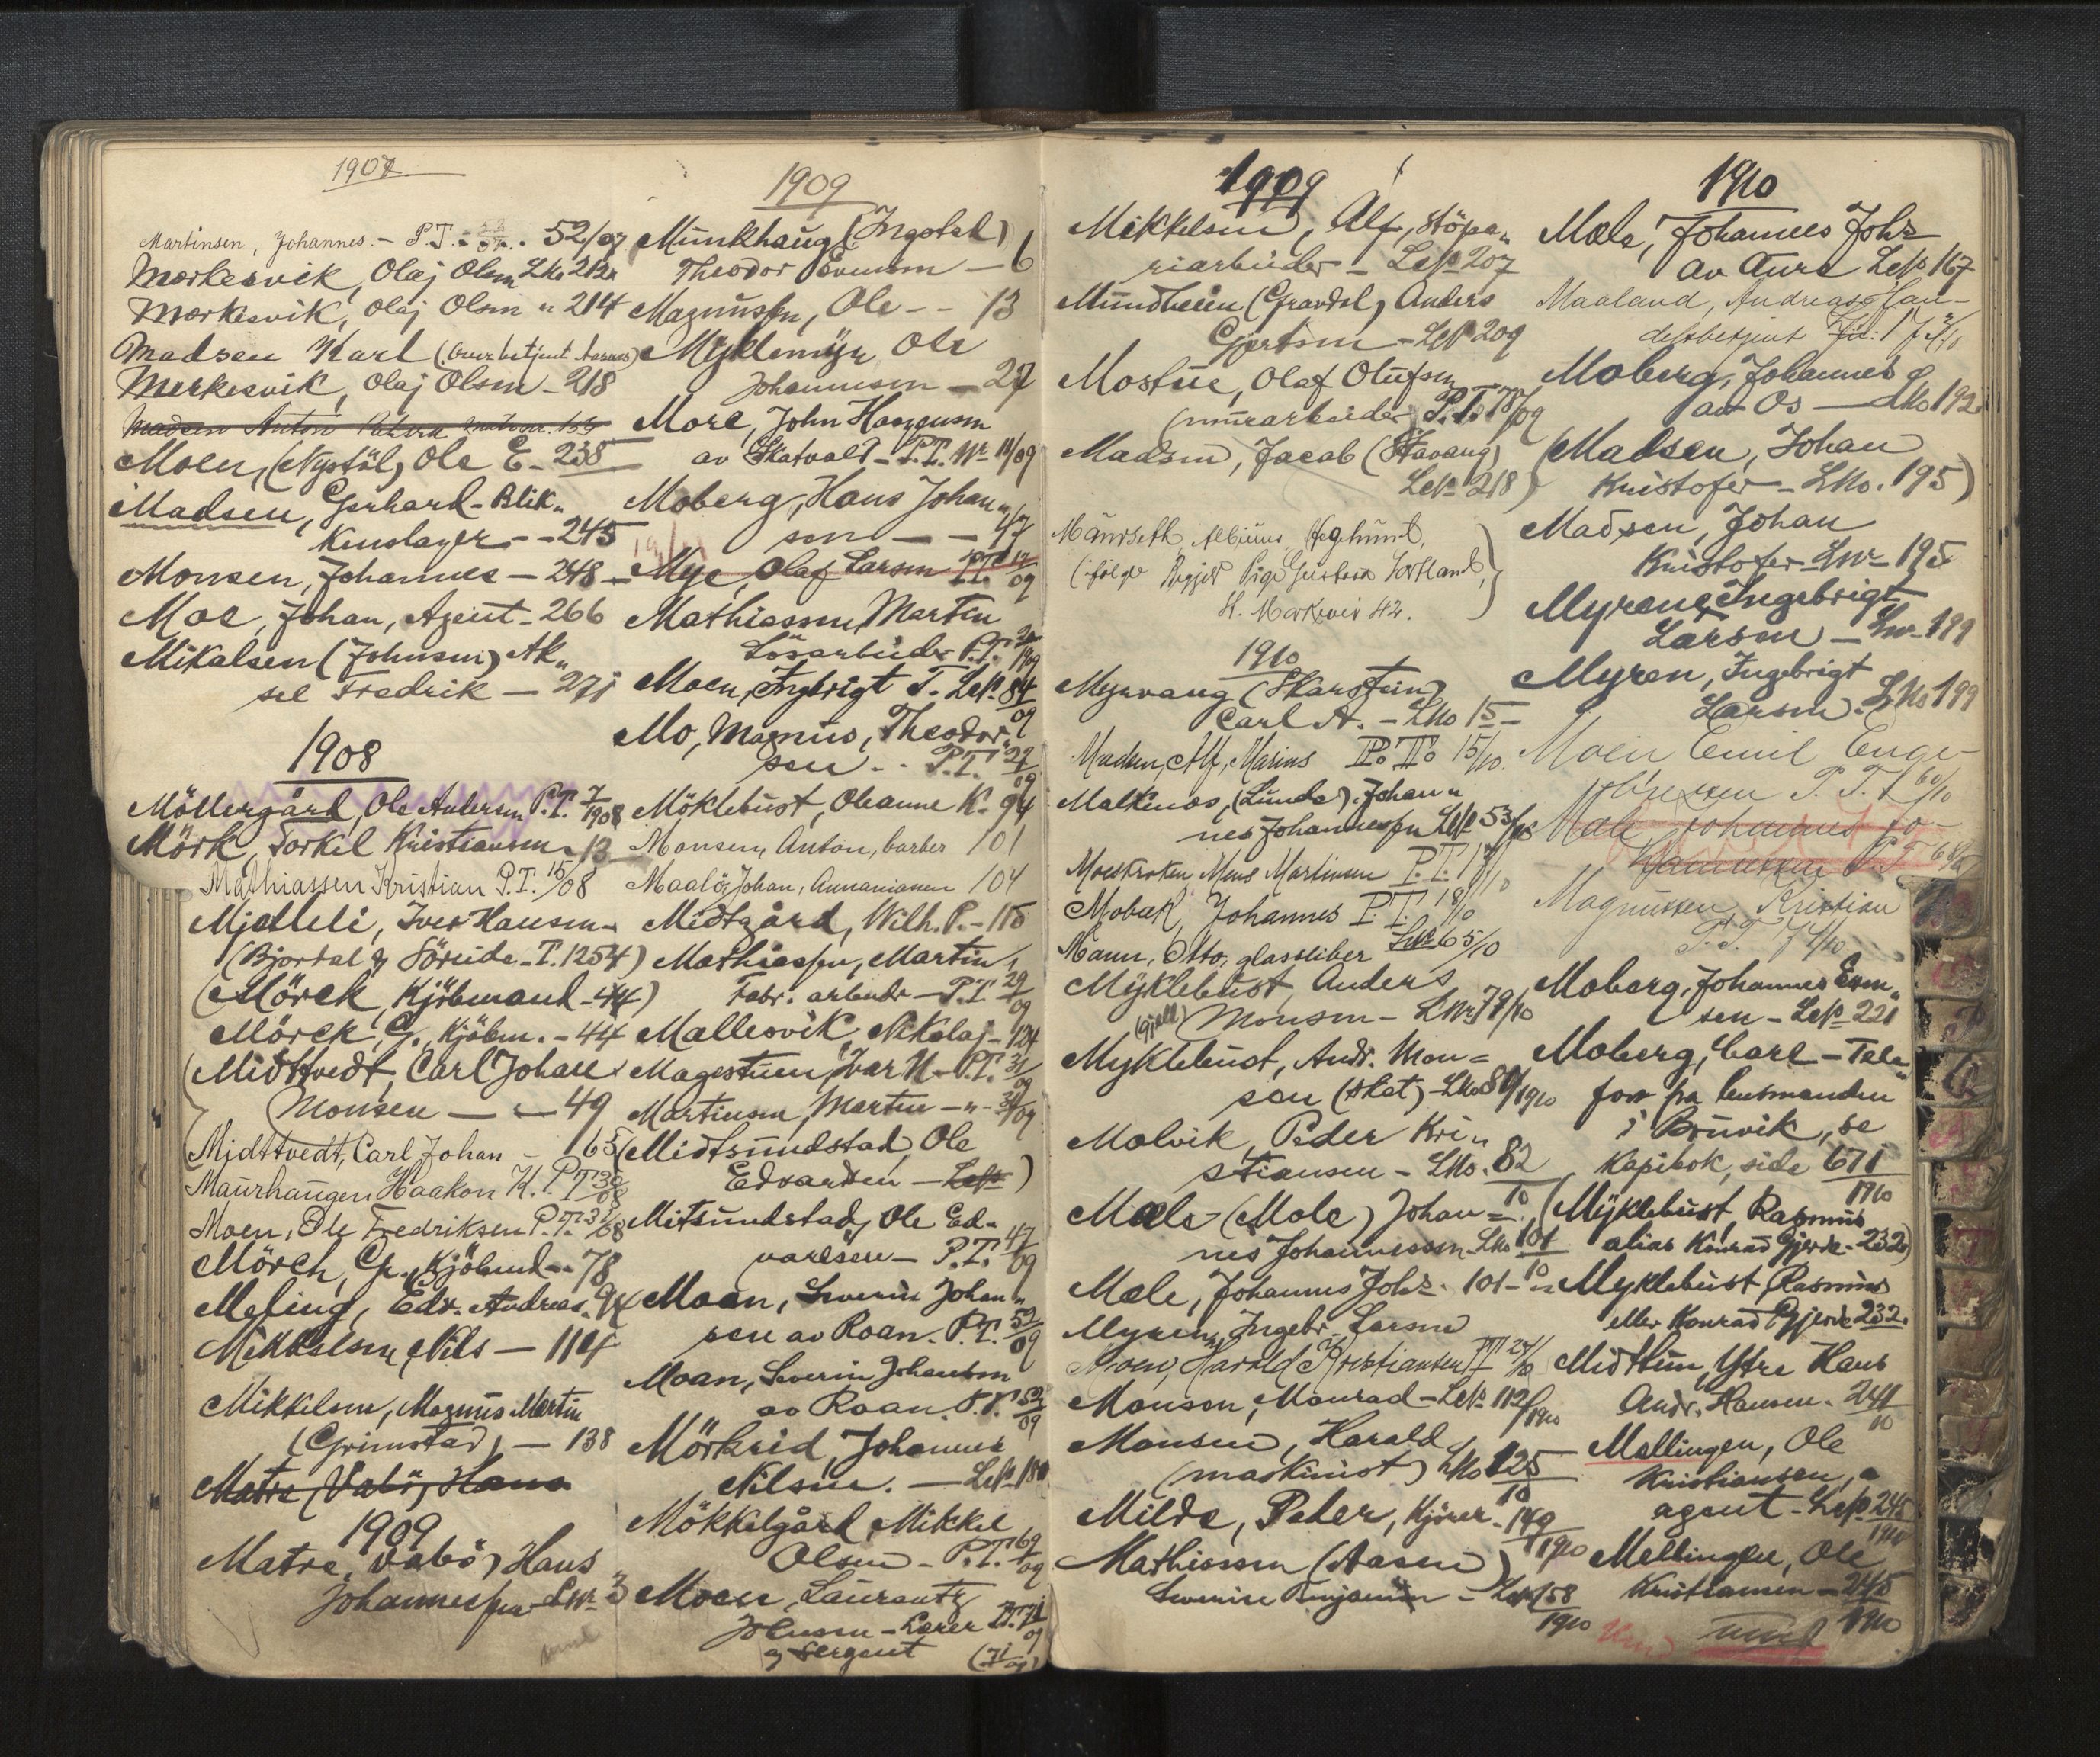 1907
Martinsen, Johannes. - P.T. 52/07
Morkesvik, Olaj Olsen LNo 212
Morkesvik, Olaj Olsen " 214
Madsen Karl (Overbetjent
Merkesvik, Olaj Olsen - 218
Madsen Anton
Moen, (Nystöl) Ole E - 238
Madsen, Gerhard - Blik„
kenslager - - 245
Monsen, Johannes - 248 -
Moe, Johan, Agent - 266
Mikalsen (Johnsen) Ak„
sel Fredrik - 271
1908
Möllergård, Ole Andersen P.T. 7/1908
Mörk, Torkil Kristiansen - 13
Mathiassen Kristian P.T. 15/08
Mjelleli, Iver Hansen
(Bjordal & Söreide - T. 1254)
(Mörck, Kjöbmand - 44)
Mörck, G., Kjöbm. - 44
(Midttvedt, Carl Johan
Monsen - - 49
Midttvedt, Carl Johan - 65
Maurhaugen Haakon K. P.T. 30/08
Moen, Ole Fredriksen P.T. 3/08
Mörch, Chr., Kjöbmd - 78
Meling, Edv. Andreas. 94
Mikkelsen, Nils - 114
Mikkelsen, Magnus Martin
(Grimstad) - 138
Matre, (Vabö) Hans
1909
Matre, (Vabö) Hans
Johannessen Lnr 3
1909
Munkhaug (Ingstad)
Theodor Evensen - 6
Magnussen, Ole - - 13
Myklemyr Ole
Johannesen - 27
More, John Haagensen
av Skatvald - P.T. Nr 11/09
Moberg, Hans Johan„
sen - - 47
Mye, Olaf Larsen P.T. 12/09
Mathiassen, Martin
Lösarbeider P.T. 20/1909
Moen, Ingbrigt T. Lnr 84/09
Mo, Magnus, Theodor„
sen - - P.T. 27/09
Möklebust, Oleanne K. 94
Monsen, Anton, barber 101
Maalö, Johan, Annaniassen 104
Midtgård, Wilh. P. - 115
Mathiassen, Martin,
Fabr. arbeider - P.T. 29/09
Mallesvik, Nikolaj - 124
Magestuen, Ivar N. P.T. 31/09
Martinsen, Martin - " - 34/09
(Midtsundstad, Ole
Edvardsen - )
Mitsundstad, Ole Ed-
vardsen - P.T. 47/09
Moan, Severin Johan„
sen av Roan. P.T. 52/09
Moan, Severin Johansen
av Roan. P.T. 52/09
Mörkrid, Johannes
Nilsen. - LNo 180
Mökkelgård, Mikkel
Olsen - P.T. 69/09
Moen, Laurantz
Johnsen - Lærer P.T. 71/09
og Sergent (71/09)
1909
Mikkelsen, Alf, stöpe„
riarbeider - LNo 207
Mundheim (Gravdal) Anders
Gjertsen - LNo 209
Mostue, Olaf Olufsen
(murarbeider) P.T. 78/09
Madsen, Jacob (Stavang)
LNo 218
Maurseth, Albinus Aeghunt,
(ifölge Pige Gustava Sortland,
H. Markvei 42.
1910
Myrvang (Skarstein)
Carl A. - LNo 15 -
Madsen, Alf, Marius P.T. 15/10.
Malkenos, (Lunde), Johan„
nes Johannessen LNo 53/10
Moeskroken Mons Martinsen P.T. 17/10
Mobak, Johannes P.T. 18/10
Maun, Otto, glassliber LNo 65/10
Myklebust, Anders
(gjeld) Monsen - Lnr 79/10
Myklebust, Andr. Mon=
sen (skat) - LNo 80/1910
Molvik, Peder Kri„
stiansen - LNo. 82/10
Mæle (Mole) Johan=
nes Johannessen LNo 101/10
Mæle, Johannes Johs. 101 -
Myren, Ingebr. Larsen
Moen, Harald Kristiansen P.T. 24/10
Monsen, Monrad - LNo 112/1910
Monsen, Harald
(maskinist) LNo 125/10
Milde, Peder, Kjörer - 149/1910
Mathiassen (Aasen)
Severine Benjamin - LNo 158/1910
1910
Mæle, Johannes Johs
av Aure LNo 167
Maaland, Andreas, Han-
delsbetjent
Moberg, Johannes
av Os - LNo 192
(Madsen, Johan
Kristofer - LNo. 195)
Madsen, Johan
Kristofer - Lnr 195
Myrene Ingebrigt
Larsen - Lnr 199
Myren, Ingebrigt
Larsen. LNo 199
Moen Emil Enge-
bretsen P.T. 60/10
Mæle Johannes Jo-
hannessen P.T. 68/10
Magnussen, Kristian
P.T. 74/10
Moberg, Johannes Erm„
sen - LNo 221
Moberg, Carl - Tele„
fon fra lensmanden
i Bruvik, se
Kopibok, side 671/1910
(Myklebust, Rasmus
alias Konrad Gjerde - 232)
Myklebust, Rasmus
eller Konrad Gjerde 232.
Midttun, Ytre Hans
Andr. Hansen. 241/10
Mellingen, Ole
Kristiansen,
agent - LNo 245/1910
Mellingen, Ole
Kristiansen - 245/1910